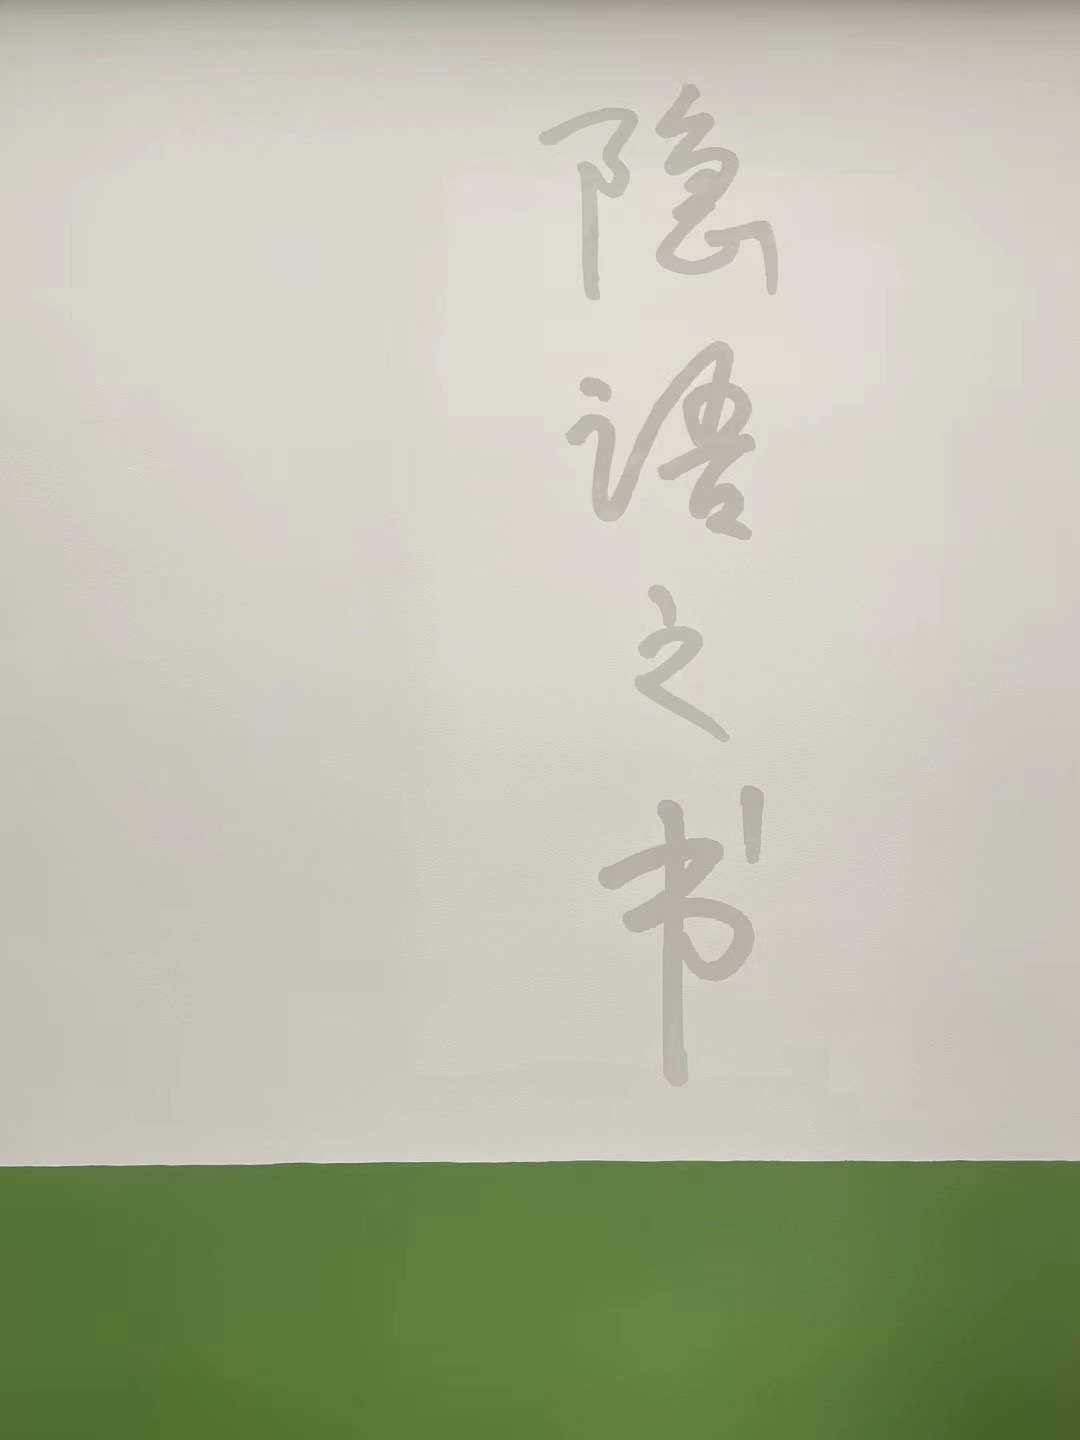 隐语之书